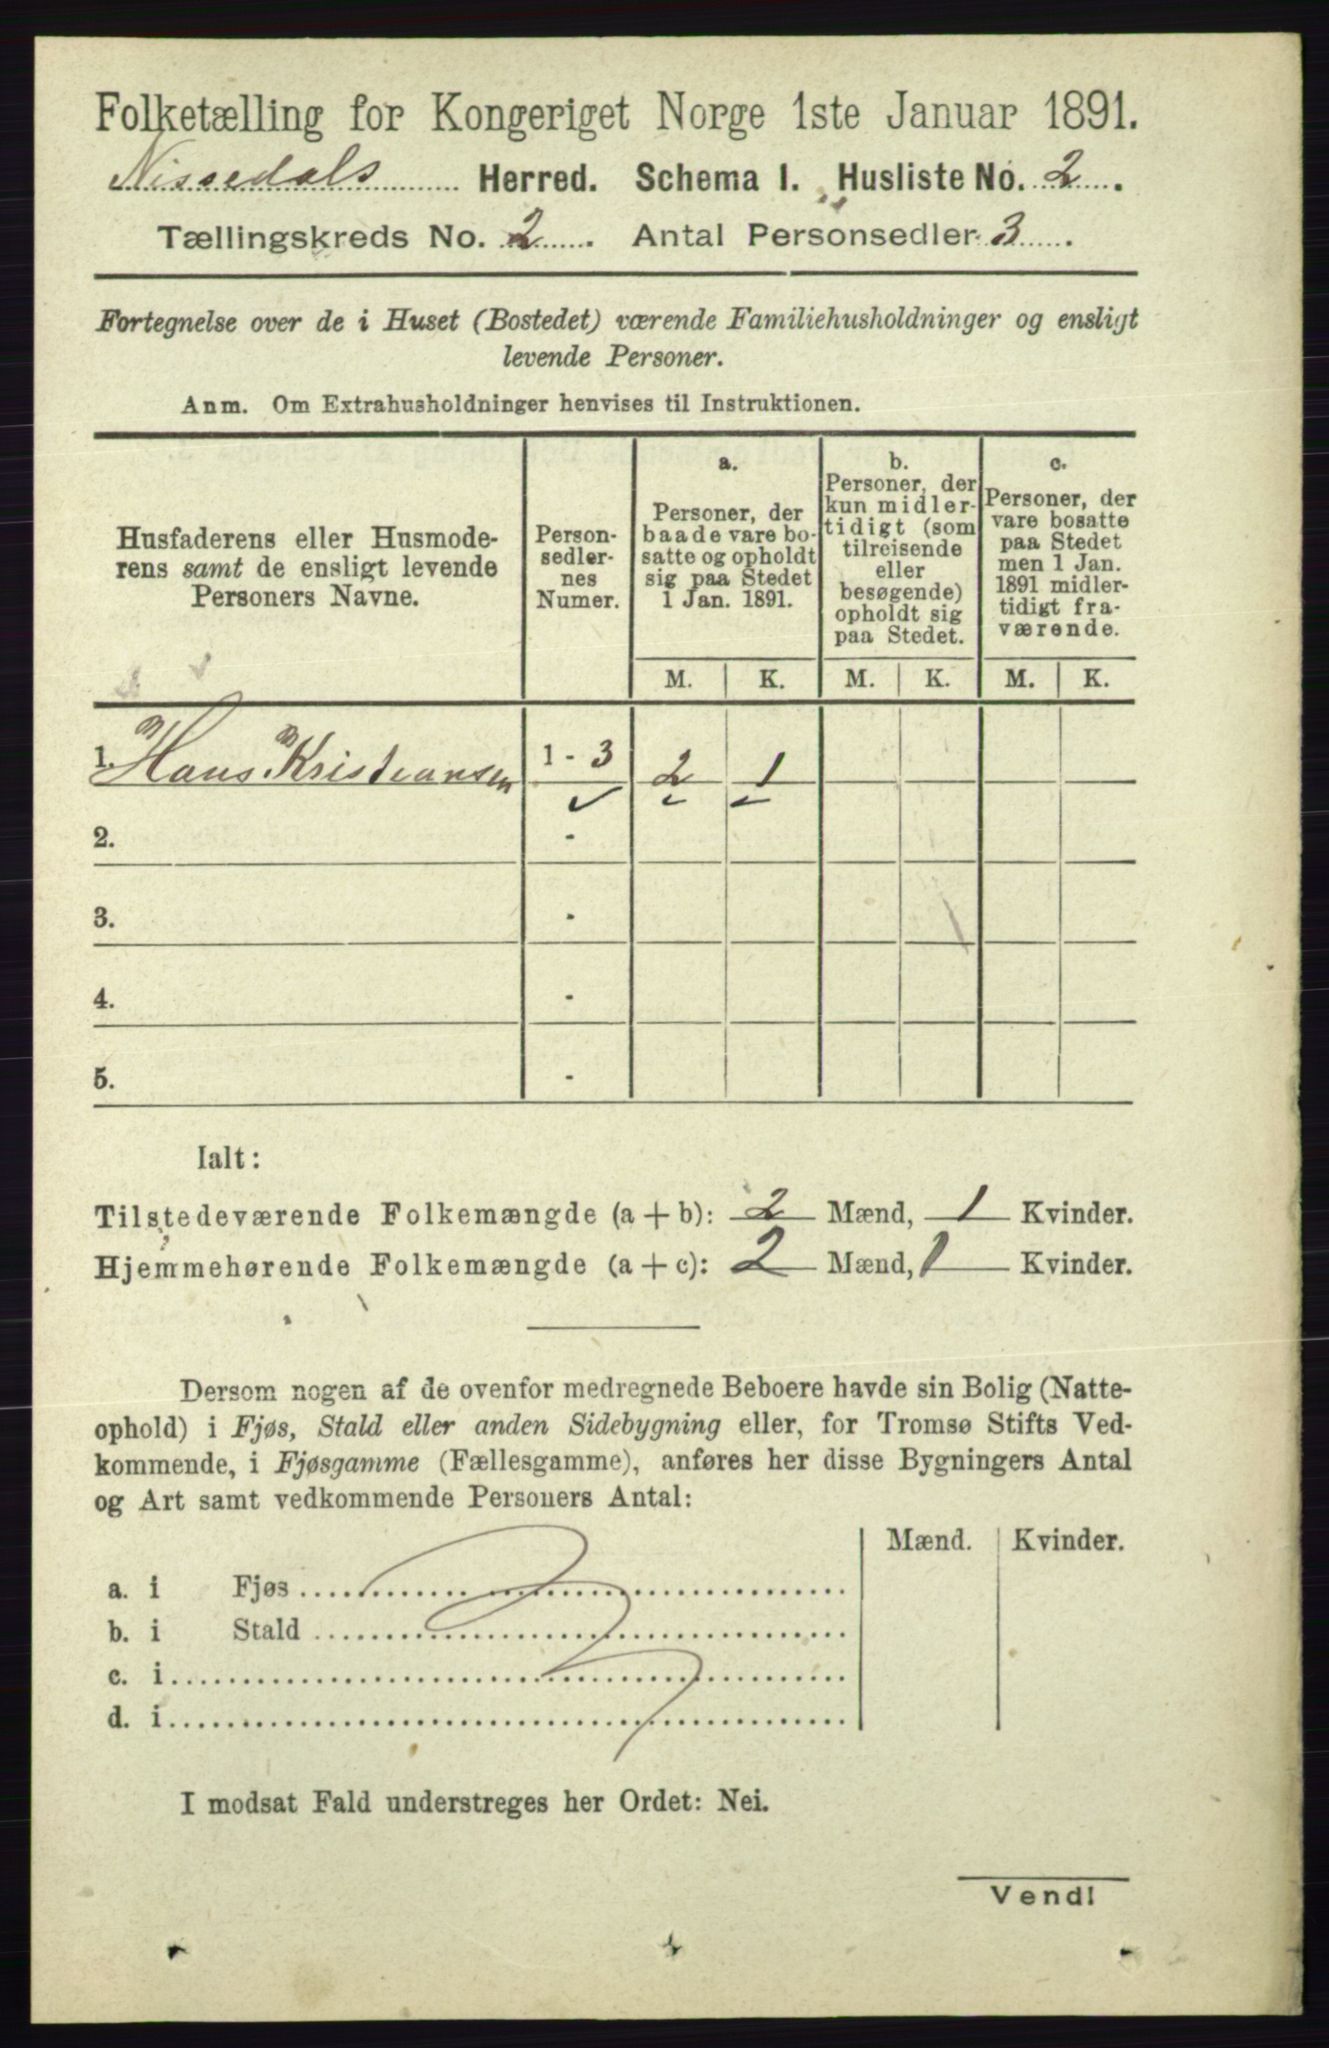 Folketælling for Kongeriget Norge 1ste Januar 1891.
Nissedals Herred. Schema 1. Husliste No. 2.
Tællingskreds No. 2. Antal Personsedler 3.
Fortegnelse over de i Huset (Bostedet) værende Familiehusholdninger og ensligt
levende Personer.
Anm. Om Extrahusholdninger henvises til Instruktionen.
Husfaderens eller Husmode-
rens samt de ensligt levende
Personers Navne.
Person-
sedler-
nes
Numer.
a.
Personer, der
baade vare bo-
satte og opholdt
sig paa Stedet
1 Jan. 1891.
b.
Personer, der
kun midler-
tidigt (som
tilreisende
eller
besøgende)
opholdt sig
paa Stedet.
c.
Personer, der
vare bosatte
paa Stedet
men 1 Jan.
1891 midler-
tidigt fra-
værende.
M. K. M. K. M. K.
1. Hans Kristiansen 1 - 3 2 1
2. -
3. -
4. -
5. -
Ialt:
Tilstedeværende Folkemængde (a + b): 2 Mænd, 1 Kvinder.
Hjemmehørende Folkemængde (a + c): 2 Mænd, 1 Kvinder.
Dersom nogen af de ovenfor medregnede Beboere havde sin Bolig (Natte-
ophold) i Fjøs, Stald eller anden Sidebygning eller, for Tromsø Stifts Ved-
kommende, i Fjøsgamme (Fællesgamme), anføres her disse Bygningers Antal
og Art samt vedkommende Personers Antal:
Mænd. Kvinder.
a. i Fjøs
b. i Stald
c. i
d. i
I modsat Fald understreges her Ordet: Nei.
Vend!